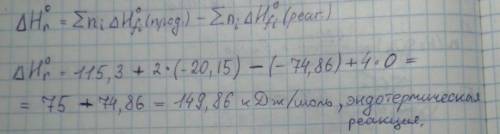 ΔHr° = Σni ΔHfi°(прод) − Σni ΔHfi°(реаг.)
ΔHr° = 115,3 + 2·(-20,15) − (-74,86) + 4·0 =
= 75 + 74,86 = 149,86 кДж/моль, эндотермическая
реакция.